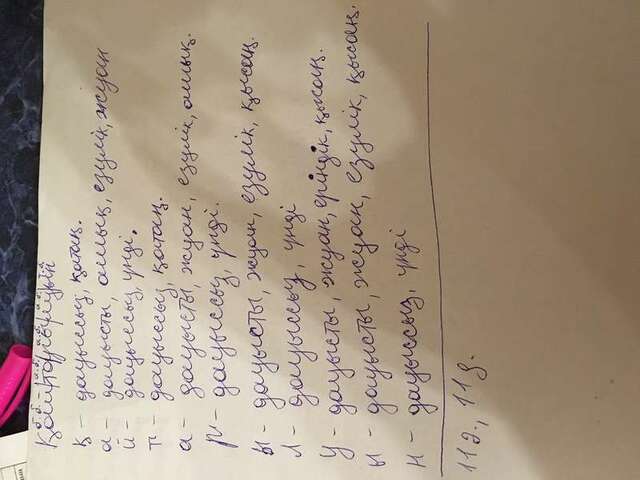 б.б. а.б. а.б. а.б. т.б.
Қайтарылуын
Қ – дауыссыз, қатаң.
а – дауысты, ашық, езулік, жуан
й – дауыссыз, үнді.
т – дауыссыз, қатаң.
а – дауысты, жуан, езулік, ашық.
р – дауыссыз, үнді.
ы – дауысты, жуан, езулік, қысаң.
л – дауыссыз, үнді
у – дауысты, жуан, еріндік, қысаң.
ы – дауысты, жуан, езулік, қысаң.
н – дауыссыз, үнді
11ә., 11д.